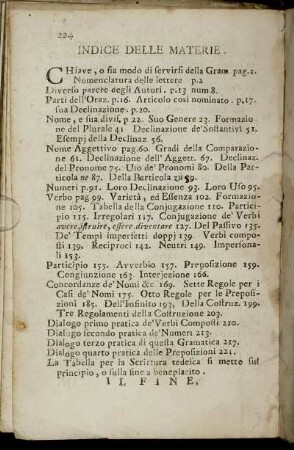 224
INDICE DELLE MATERIE.
CHiave, o sia modo di servirsi della Gram. pag.1.
Nomenclatura delle lettere p.2
Diverso parere degli Autori. p.13 num 8.
Parti dell'Oraz. p.16. Articolo così nominato. p.17.
sua Declinazione. p.20.
Nome, e sua divis. p 22. Suo Genere 23. Formazio-
ne del Plurale 41 Declinazione de'Sostantivi 51.
Esempj della Declinaz 56.
Nome Aggettivo pag.60. Gradi della Comparazio-
ne 61. Declinazione dell'Aggett. 67. Declinaz.
del Pronome 75. Uso de' Pronomi 80. Della Parti-
cola ne 87. Della Particola zu 59.
Numeri p.91. Loro Declinazione 93. Loro Uso 95.
Verbo pag.99. Varietà, ed Essenza 102. Formazio-
ne 105. Tabella della Conjugazione 110. Partici-
pio 115. Irregolari 117. Conjugazione de' Verbi
avere, istruire, essere, diventare 127. Del Passivo 135.
De' Tempi imperfetti doppj 139. Verbi compos-
ti 139. Reciproci 142. Neutri 149. Impersona-
li 153.
Participio 155. Avverbio 157. Preposizione 159.
Congiunzione 163. Interjezione 166.
Concordanze de'Nomi &c. 169. Sette Regole per i
Casi de' Nomi 175. Otto Regole per le Preposi-
zioni 185. Dell'Infinito 193. Della Costruz. 199.
Tre Regolamenti della Costruzione 203.
Dialogo primo pratica de'Verbi Composti 210.
Dialogo secondo pratica de' Numeri 213.
Dialogo terzo pratica di questa Gramatica 217.
Dialogo quarto pratica delle Preposizioni 221.
La Tabella per la Scrittura tedesca si mette sul
principio, o sulla fine a beneplacito.
IL FINE.